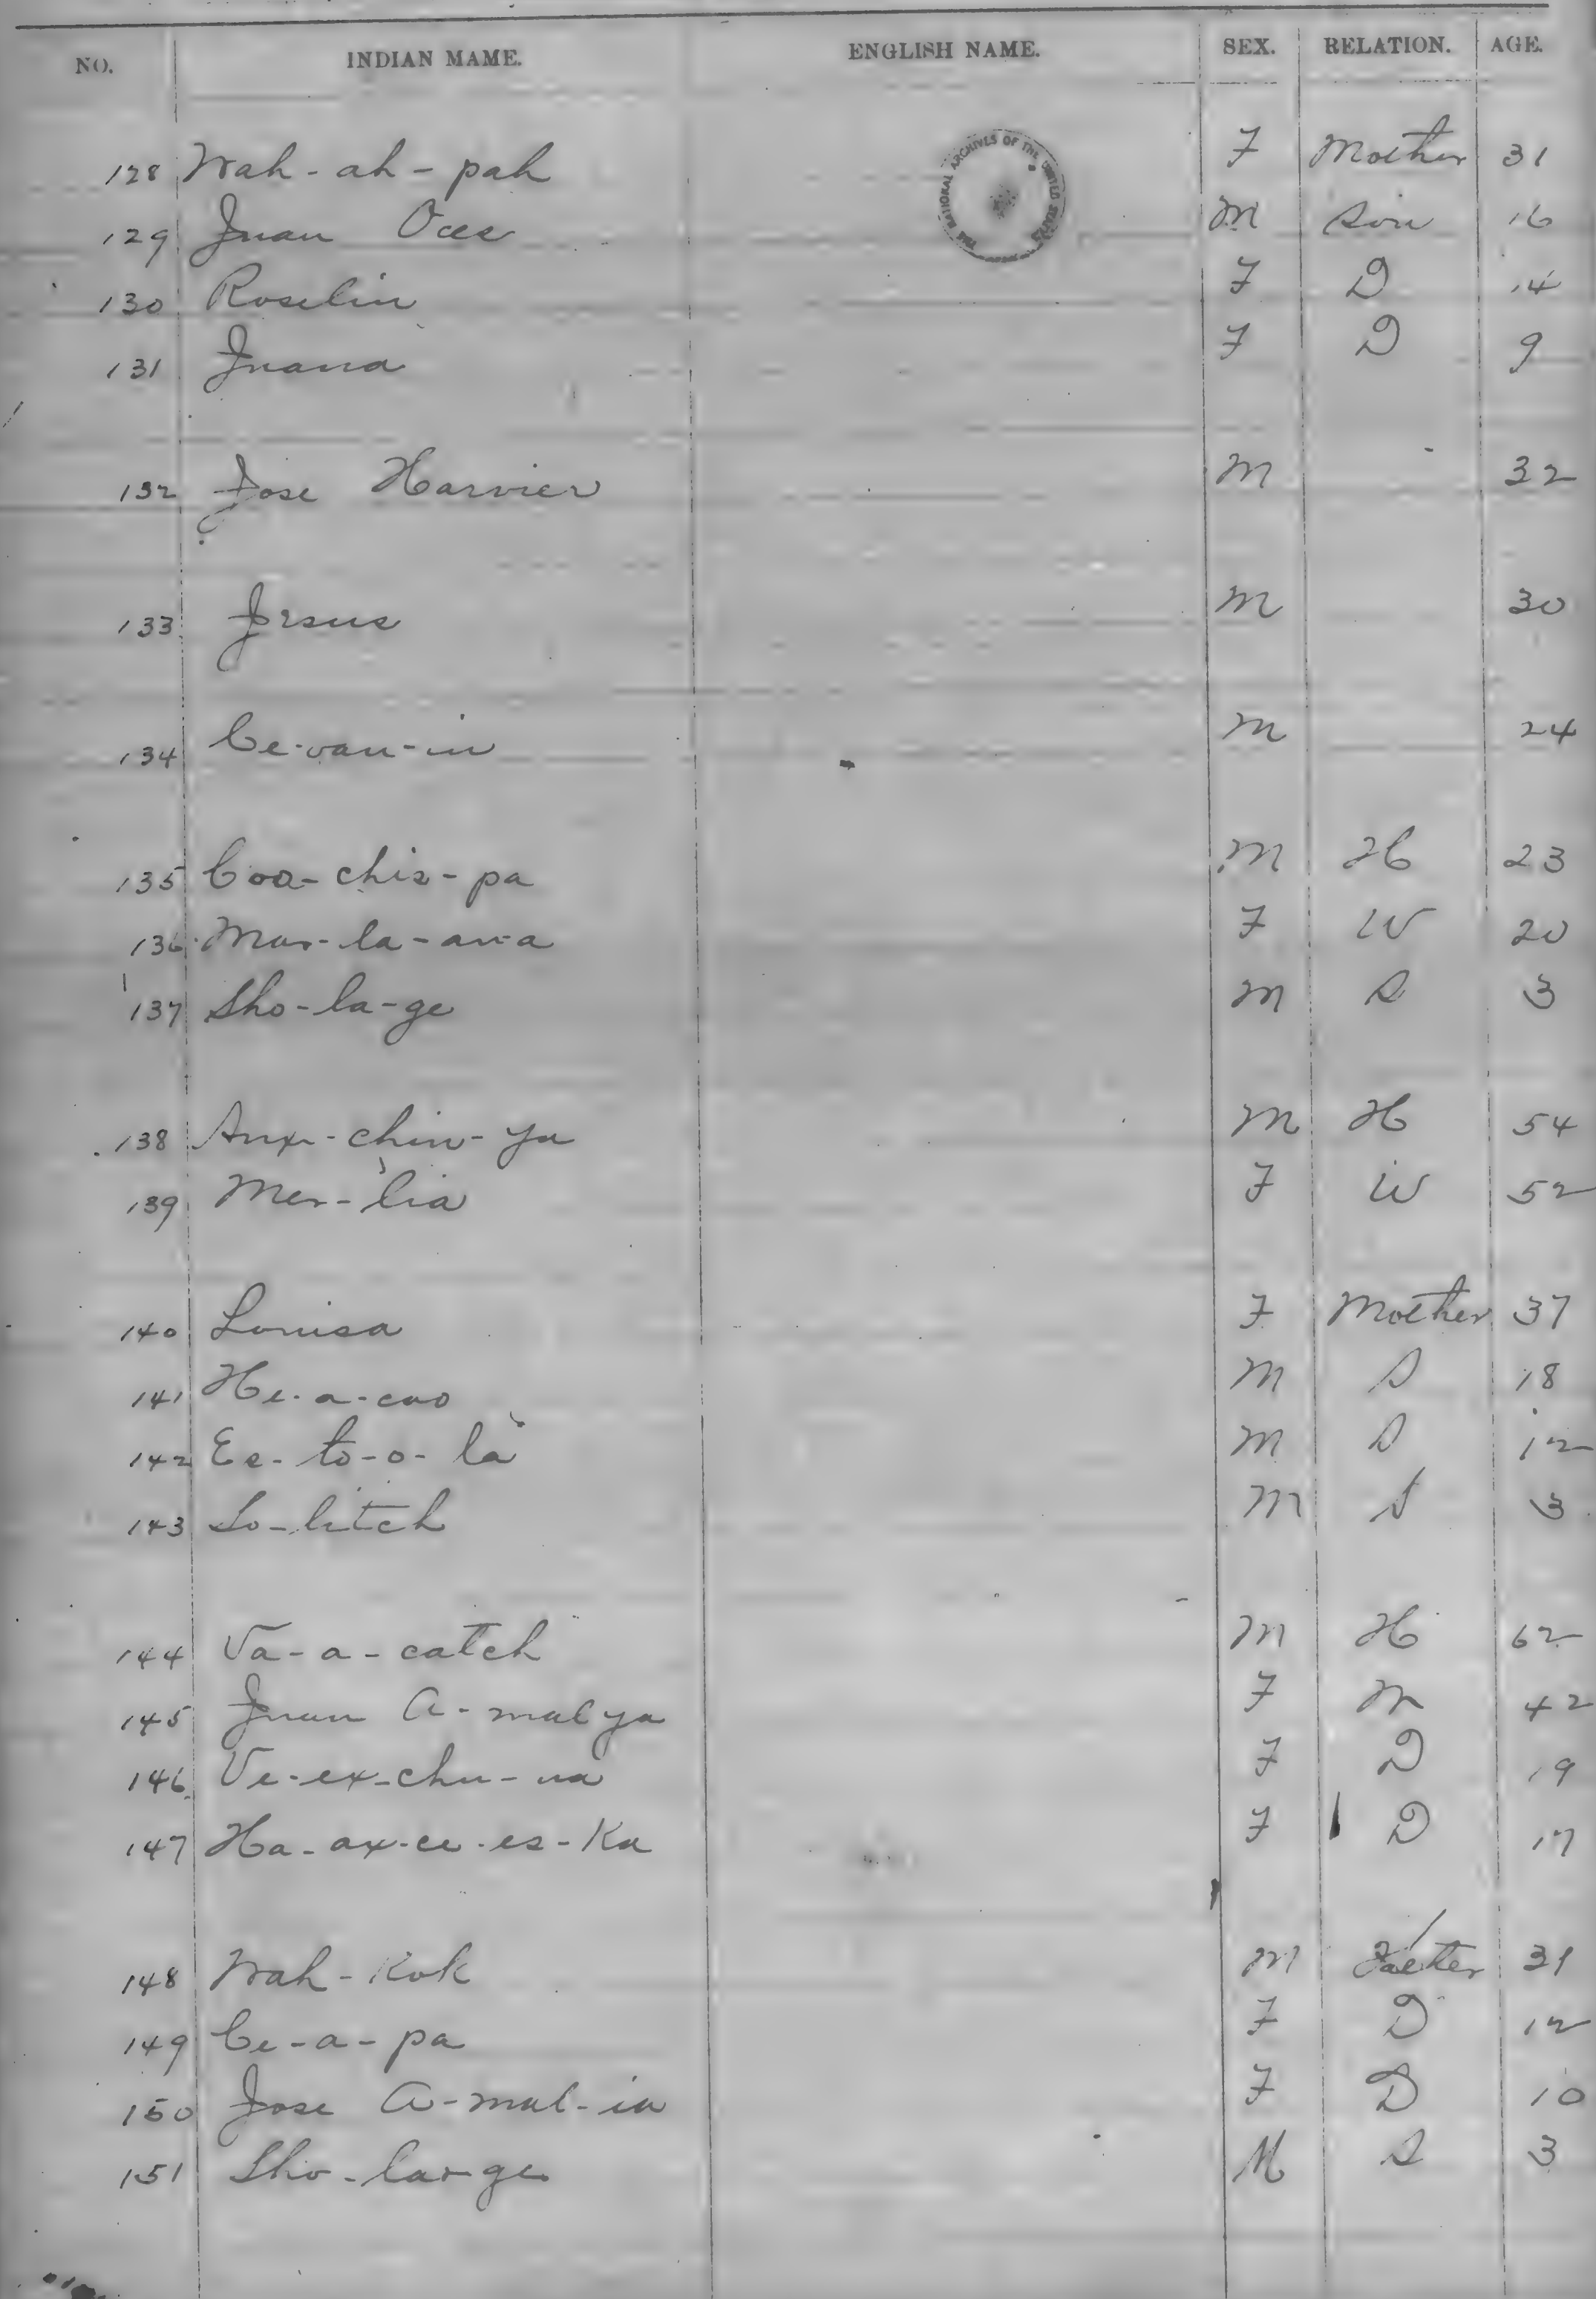 NO. INDIAN MAME. ENGLISH NAME. SEX. RELATION. AGE.
THE NATIONAL ARCHIVES OF THE UNITED STATES
128 Wah-ah-pah F Mother 31
129 Juan Oces M Son 16
130 Roselin F D 14
131 Juana F D 9
132 Jose Harvier M 32
133 Jesus M 30
134 Ce-van-in M 24
135 Coo-chis-pa M H 23
136 F W 20
137 Sho-la-ge M S 3
138 Aux-chin-ya M H 54
139 Mer-lia F W 52
140 Louisa F Mother 37
141 He-a-cuo M S 18
142 Es-to-o-la M S 12
143 So-litch M S 3
144 Va-a-catch M H 62
145 Juan A-malya F M 42
146 Ve-ex-chu-na F D 19
147 Ha-ax-ce-es-Ka F D 17
148 Wah-Kok M Father 31
149 Ce-a-pa F D 12
150 Jose A-mal-ia F D 10
151 Sho-lar-ge M S 3